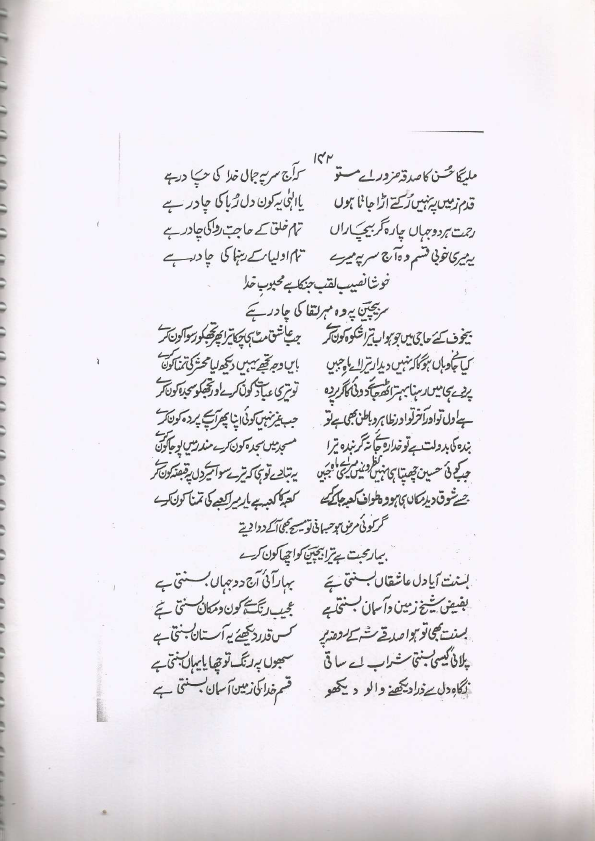 ۱۴۲
ملیگا حُسن کا صدقہ ضرور اے مستو کہ آج سر پہ جمال خدا کی چادر ہے
قدم زمیں پہ نہیں رُکتے اڑا جاتا ہوں یا الٰہی یہ کون دل رُبا کی چادر ہے
رحمت ہر دو جہاں چارہ گر بیچاراں تمام خلق کے حاجت روا کی چادر ہے
یہ میری خوبی قسم وہ آج سر پہ میرے تمام اولیاء کے رہنما کی چادر ہے
خوشا نصیب لقب جنکا ہے محبوب خدا
سر بیچین پہ وہ مہر لقا کی چادر ہے
بیخوف کئے حاجی میں جو ہو اب تیرا شکوہ کون کرے جب عاشق مٹ ہی چکا تیرا پھر تجھکو رسوا کون کرے
کیا جانے وہاں ہوگا کہ نہیں دیدار تیرا اے ماہ جبیں بایں وجہ تجھے یہیں دیکھ لیا محشر کی تمنا کون کرے
پردے ہی میں رہنا بہتر اٹھ جائے دوئی کا گر پردہ تو تیری عبادت کون کرے اور تجھکو سجدہ کون کرے
ہے اول تو اور آخر تو اور ظاہر و باطن بھی ہے تو جب غیر نہیں کوئی اپنا پھر آپ سے پردہ کون کرے
بندہ کی بدولت ہے تو خدا رہ جائے نہ گر بندہ تیرا مسجد میں سجدہ کون کرے مندر میں پوجا کون کرے
جب کوئی حسین چھپتا ہی نہیں نظروں میں میری اے ماہ جبیں یہ بتا دے تو ہی کہ تیرے سوا میرے دل پہ قبضہ کون کرے
جسے شوق دید مکاں ہی ہو وہ طواف کعبہ جا کے کرے کعبہ کا کعبہ ہے یار میرا کعبے کی تمنا کون کرے
گر کوئی مرض ہو جسمانی تو مسیح بھی آکے دوا دیتے
بیمار محبت ہے تیرا بیچین کو اچھا کون کرے
بسنت آیا دل عاشقاں بسنتی ہے بہار آئی آج دو جہاں بسنتی ہے
بفیض شیخ زمین و آسمان بسنتی ہے عجیب رنگ سے کون و مکان بسنتی ہے
بسنت بھی تو ہوا صدقے شہ کے روضہ پر کس قدر دیکھئے یہ آستان بسنتی ہے
پلائی کیسی بسنتی شراب اے ساقی سبھوں پہ رنگ تو چھایا یہاں بسنتی ہے
نگاہ دل سے ذرا دیکھنے والو دیکھو قسم خدا کی زمین آسمان بسنتی ہے